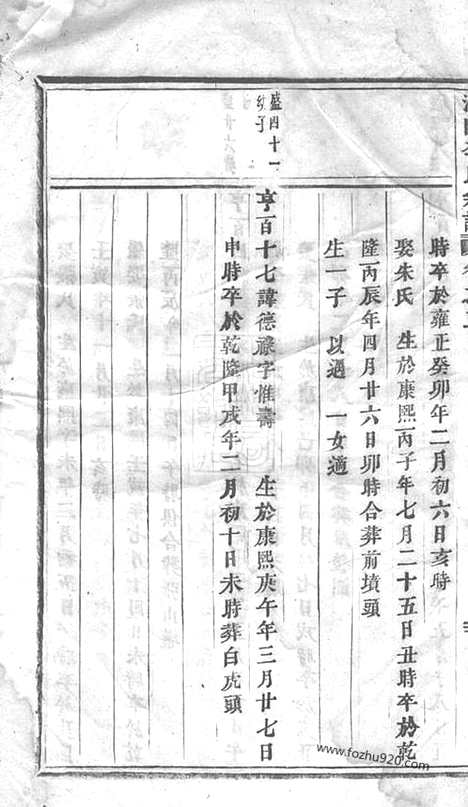 時卒於雍正癸卯年二月初六日亥時
娶朱氏 生於康熙丙子年七月二十五日丑時卒於乾
隆丙辰年四月廿六日卯時合葬前墳頭
生一子 以適 一女適
盛四十一
子
亨百十七諱德祿字惟壽 生於康熙庚午年三月廿七日
申時卒於乾隆甲戌年二月初十日未時葬白虎頭
www.fozhu920.com